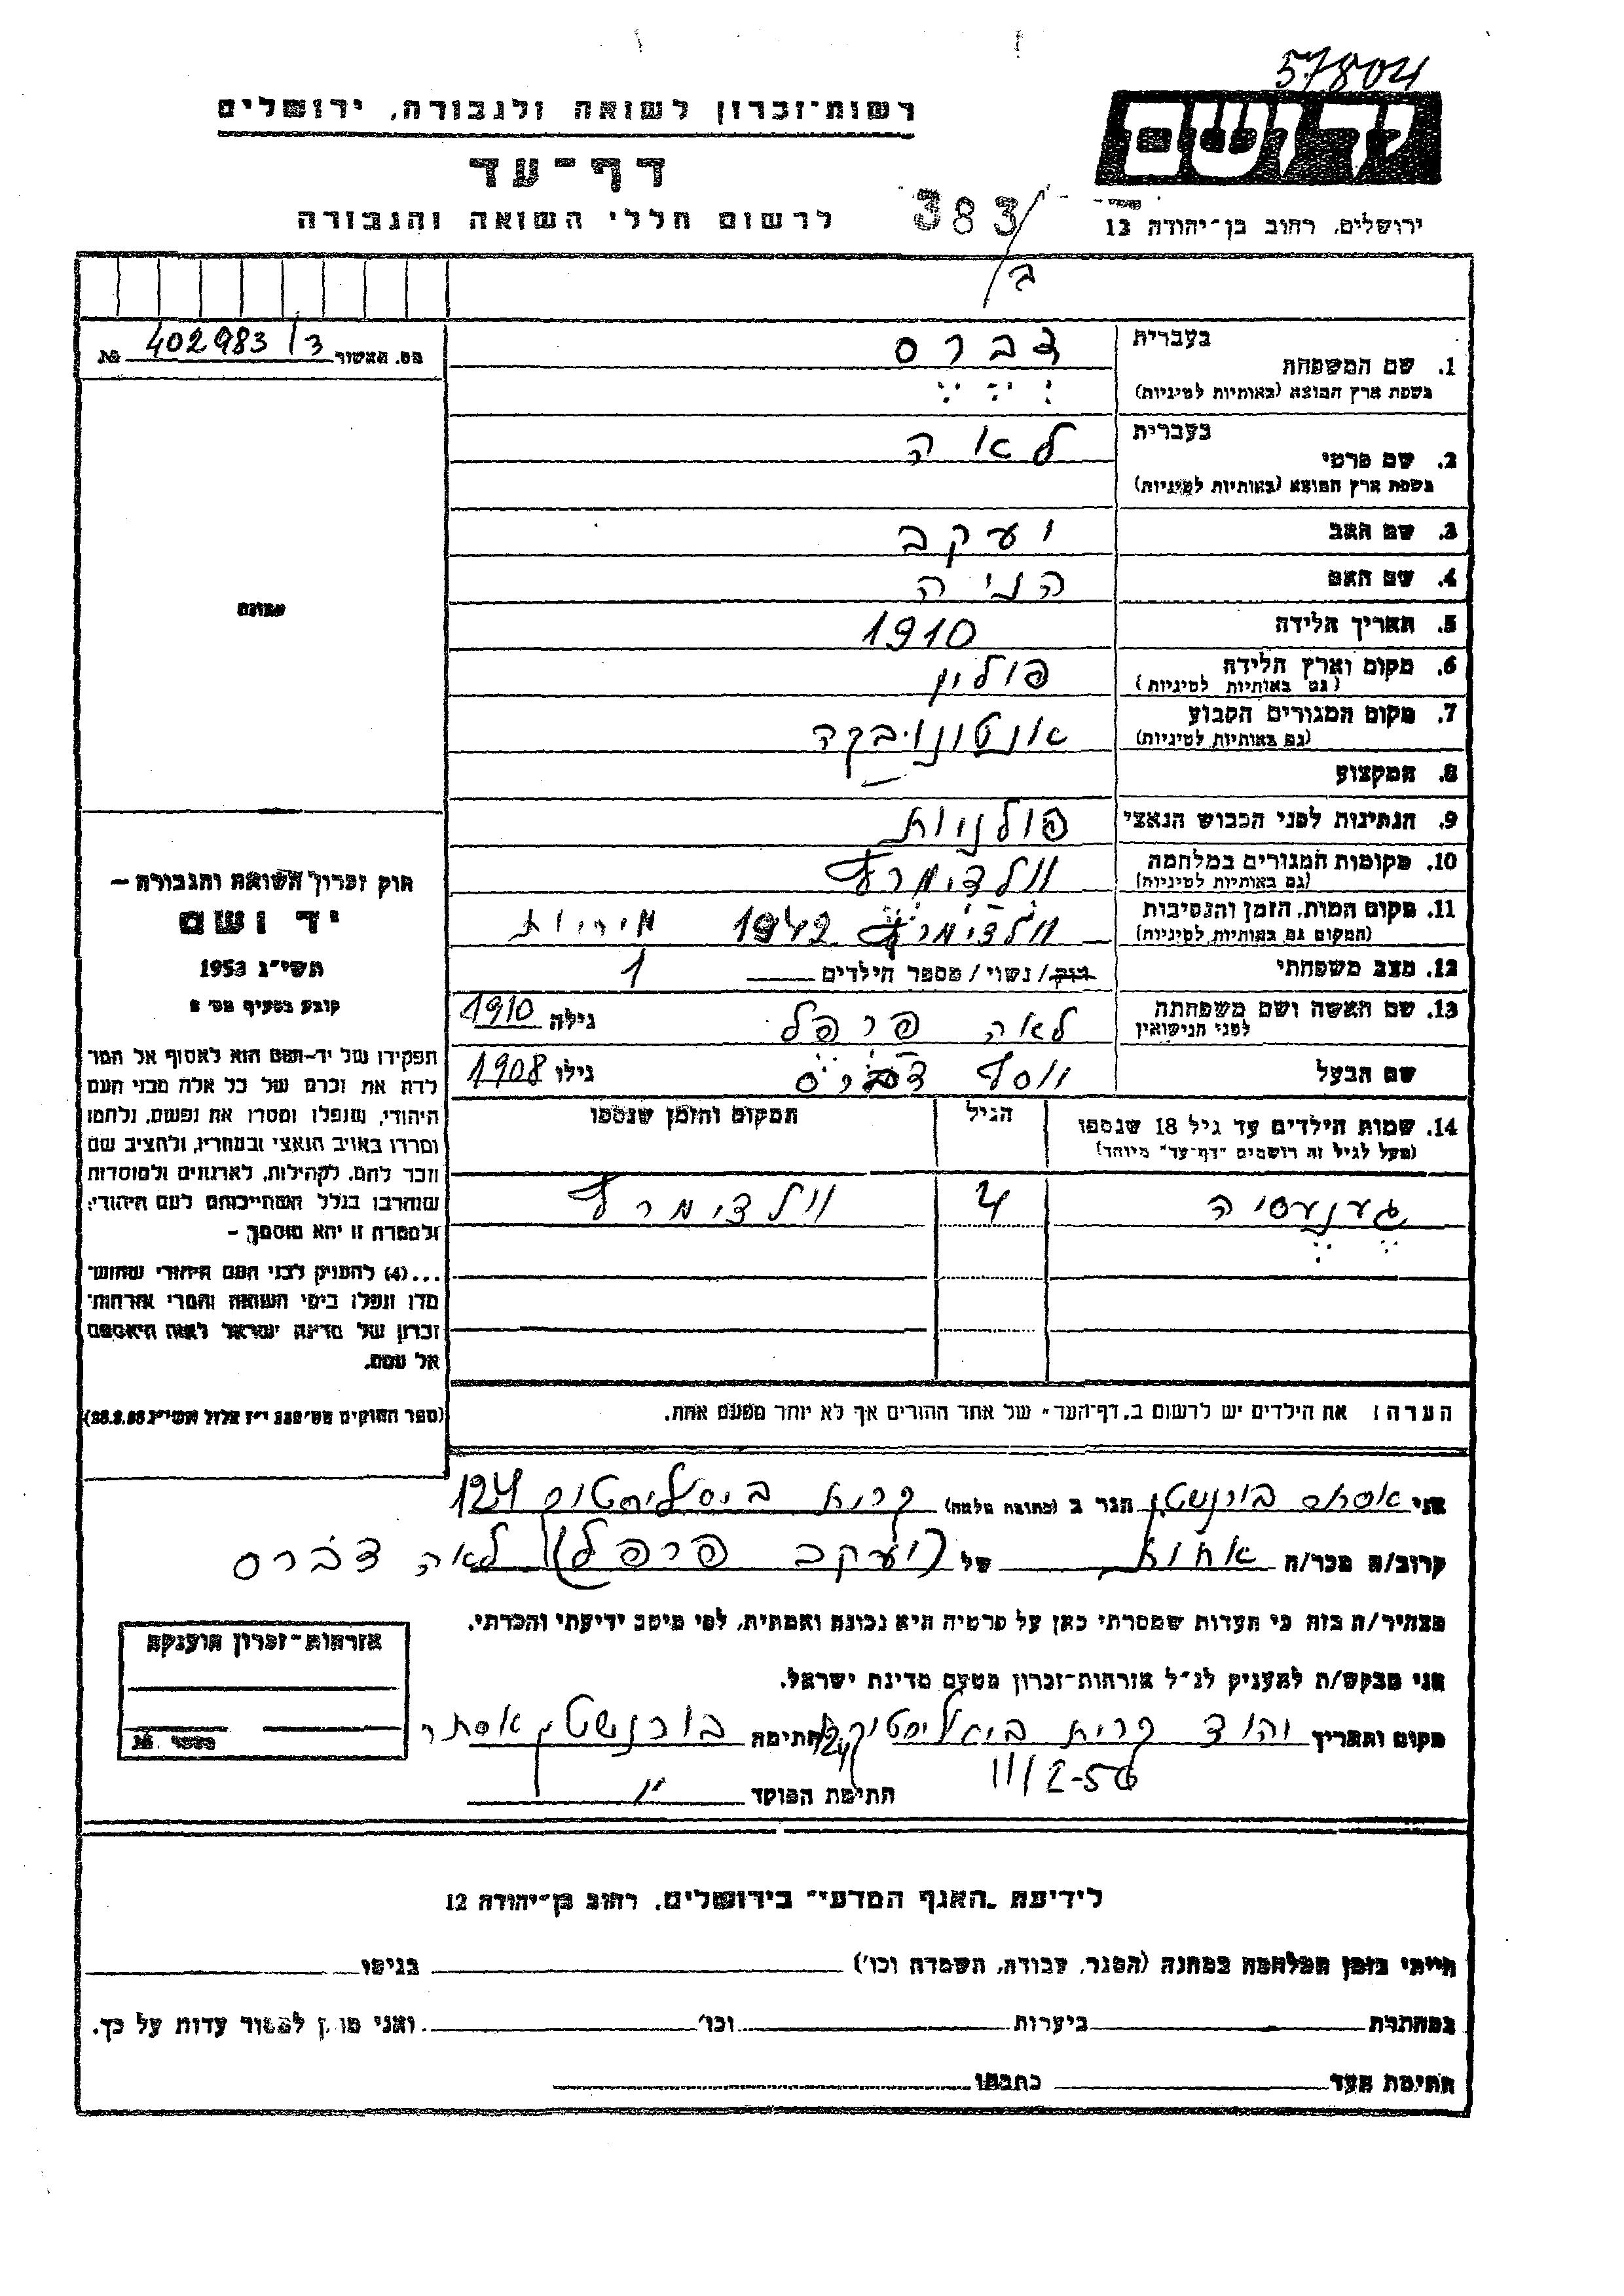 57804
רשות־זכרון לשואה ולגבורה, ירושלים
דף־עד
לרשום חללי השואה והגבורה
ידושם
ירושלים, רחוב בן־יהודה 12
383/ב
מס. האשור 402983/ג №
בעברית
1. שם המשפחה דברס
בשפת ארץ המוצא (באותיות לטיניות)
בעברית
2. שם פרטי לאה
בשפת ארץ המוצא (באותיות לטיניות)
3. שם האב יעקב
4. שם האם הניה
5. תאריך הלידה 1910
6. מקום וארץ הלידה פולין
(גם באותיות לטיניות)
7. מקום המגורים הקבוע אנטונויבקה
(גם באותיות לטיניות)
8. המקצוע —
9. הנתינות לפני הכבוש הנאצי פולניות
10. מקומות המגורים במלחמה
(גם באותיות לטיניות)
11. מקום המות, הזמן והנסיבות 1942
(המקום גם באותיות לטיניות)
12. מצב משפחתי רוק/ נשוי/ מספר הילדים 1
13. שם האשה ושם משפחתה לאה פרפל גילה 1910
לפני הנישואין
שם הבעל יוסף דברס גילו 1908
14. שמות הילדים עד גיל 18 שנספו הגיל המקום והזמן שנספו
(מעל לגיל זה רושמים "דף־עד" מיוחד)
גענעסיה 4
הערה: את הילדים יש לרשום ב"דף־העד" של אחד ההורים אך לא יותר מפעם אחת.
תמונה
חוק זכרון השואה והגבורה –
יד ושם
תשי"ג 1953
קובע בסעיף מס' 2
תפקידו של יד־ושם הוא לאסוף אל המו־
לדת את זכרם של כל אלה מבני העם
היהודי, שנפלו ומסרו את נפשם, נלחמו
ומרדו באויב הנאצי ובעוזריו, ולהציב שם
וזכר להם, לקהילות, לארגונים ולמוסדות
שנחרבו בגלל השתייכותם לעם היהודי;
ולמטרה זו יהא מוסמך –
...(4) להעניק לבני העם היהודי שהוש־
מדו ונפלו בימי השואה והמרי אזרחות־
זכרון של מדינת ישראל לאות היאספם
אל עמם.
אני אסתר בורנשטין הגר ב (כתובת מלאה) קרית ביאליסטוק 124
קרוב/ה מכר/ה אחות של (יעקב פרפל) לאה דברס
מצהיר/ה בזה כי העדות שמסרתי כאן על פרטיה היא נכונה ואמתית, לפי מיטב ידיעתי והכרתי.
אני מבקש/ת להעניק לנ"ל אזרחות־זכרון מטעם מדינת ישראל.
מקום ותאריך יהוד קרית ביאליסטוק 124 חתימה בורנשטין אסתר
11/2-56
חתימת הפוקד
אזרחות־זכרון הוענקה
מספר №
לידיעת "האגף המדעי" בירושלים, רחוב בן־יהודה 12
הייתי בזמן המלחמה במחנה (הסגר, עבודה, השמדה וכו') בגיטו
במחתרת ביערות וכו' ואני מוכן למסור עדות על כך.
חתימת העד כתבתו